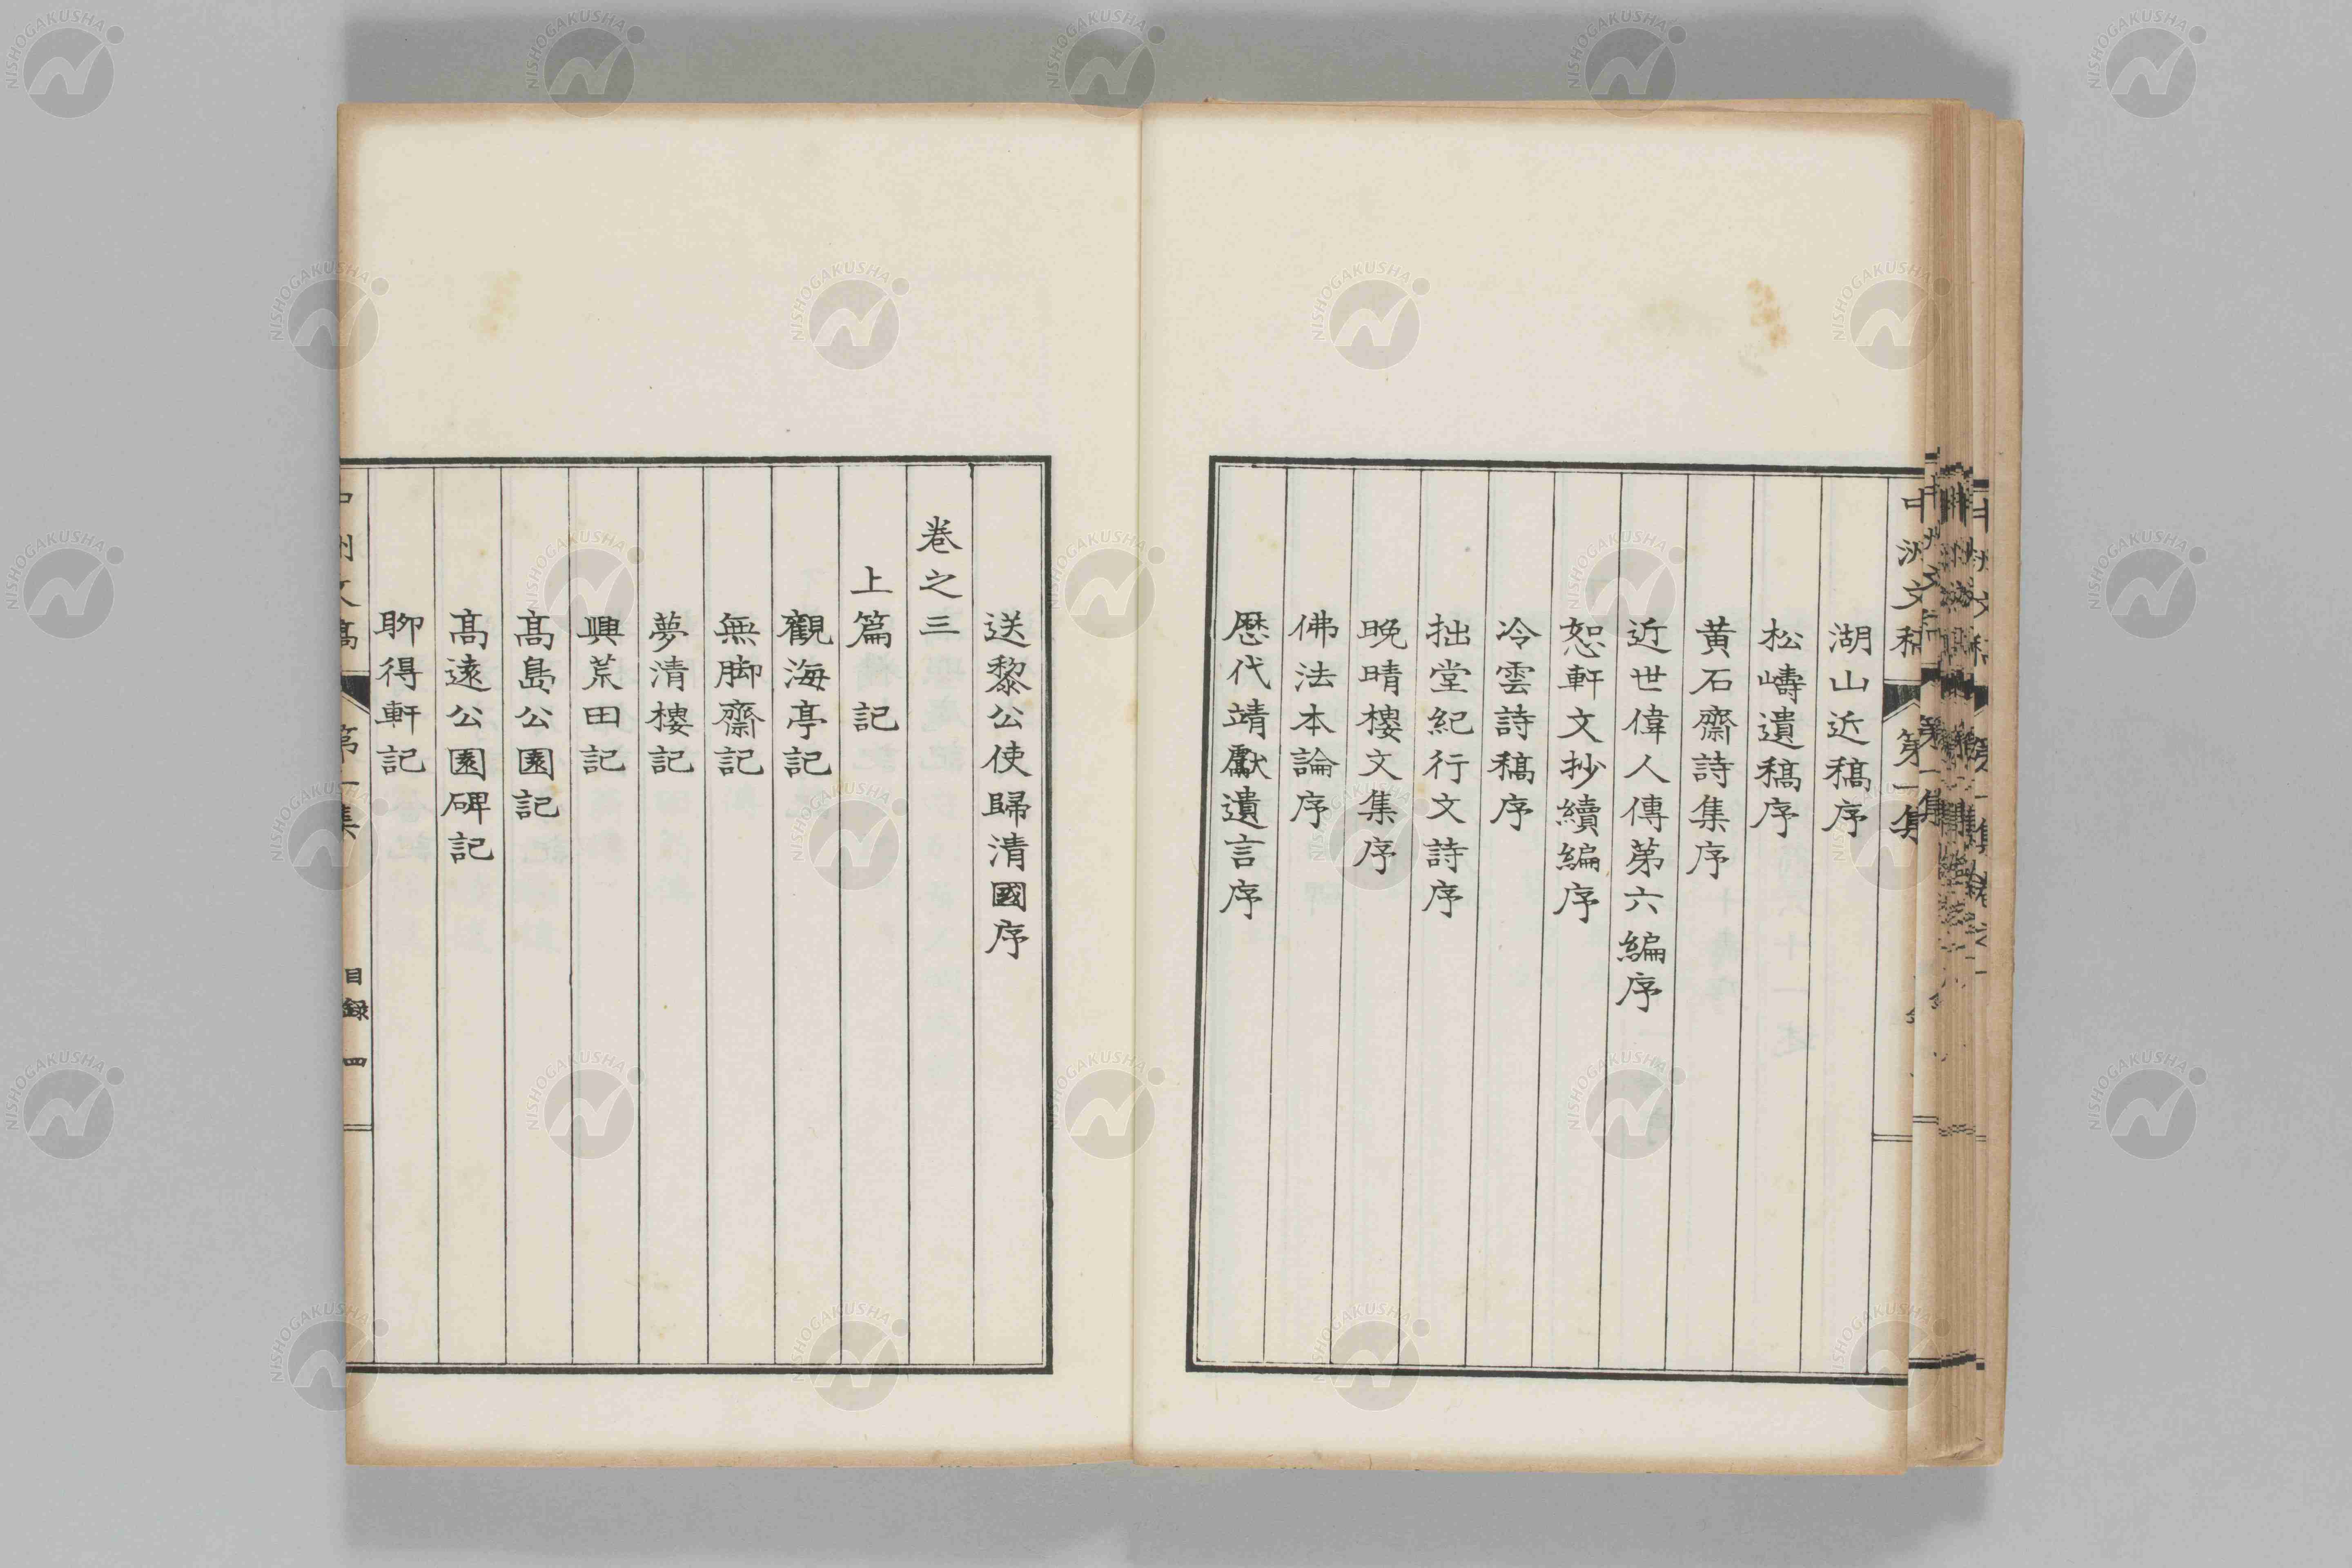 湖山近稿序
松嶹遺稿序
黄石齋詩集序
近世偉人傳苐六編序
恕軒文抄續編序
冷雲詩稿序
拙堂紀行文詩序
晩晴樓文集序
佛法本論序
歴代靖獻遺言序
送黎公使歸清國序
卷之三
上篇 記
觀海亭記
無脚齋記
夢清樓記
興荒田記
髙島公園記
髙遠公園碑記
聊得軒記
目録 四
NISHOGAKUSHA